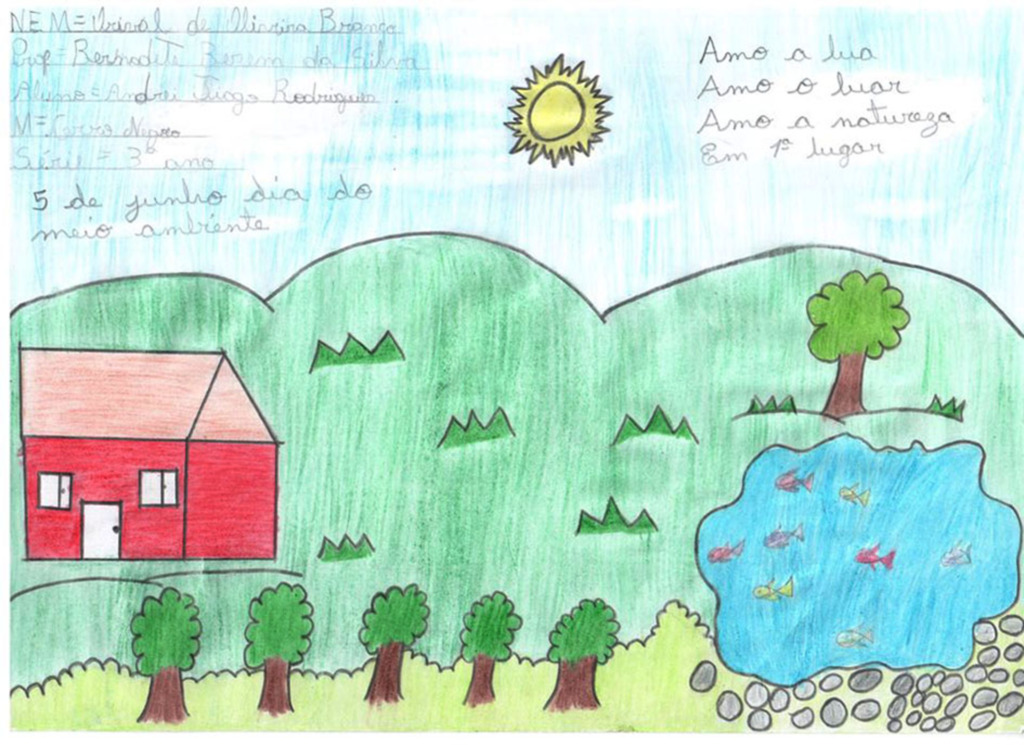 NEM = Orival de Oliveira Branco
Prof = Bernadete Berem da Silva
Aluno = Andrei Tiago Rodrigues
M = Cerro Negro
Série = 3º ano
5 de junho dia do
meio ambiente
Amo a lua
Amo o luar
Amo a natureza
Em 1º lugar